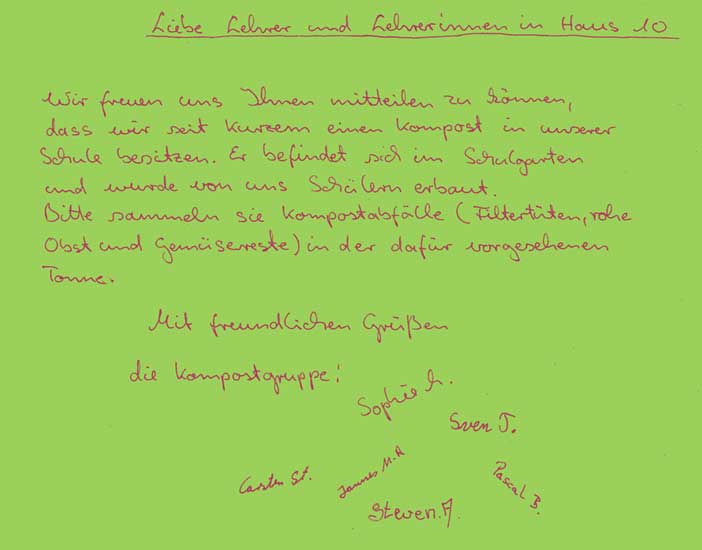 Liebe Lehrer und Lehrerinnen in Haus 10
Wir freuen uns Ihnen mitteilen zu können,
dass wir seit kurzem einen Kompost in unserer
Schule besitzen. Er befindet sich im Schulgarten
und wurde von uns Schülern erbaut.
Bitte sammeln sie Kompostabfälle (Filtertüten, rohe
Obst und Gemüsereste) in der dafür vorgesehenen
Tonne.
Mit freundlichen Grüßen
die Kompostgruppe!
Sophie h.
Sven J.
Carsten St.
Jannes M.R
Pascal B.
Steven.A.